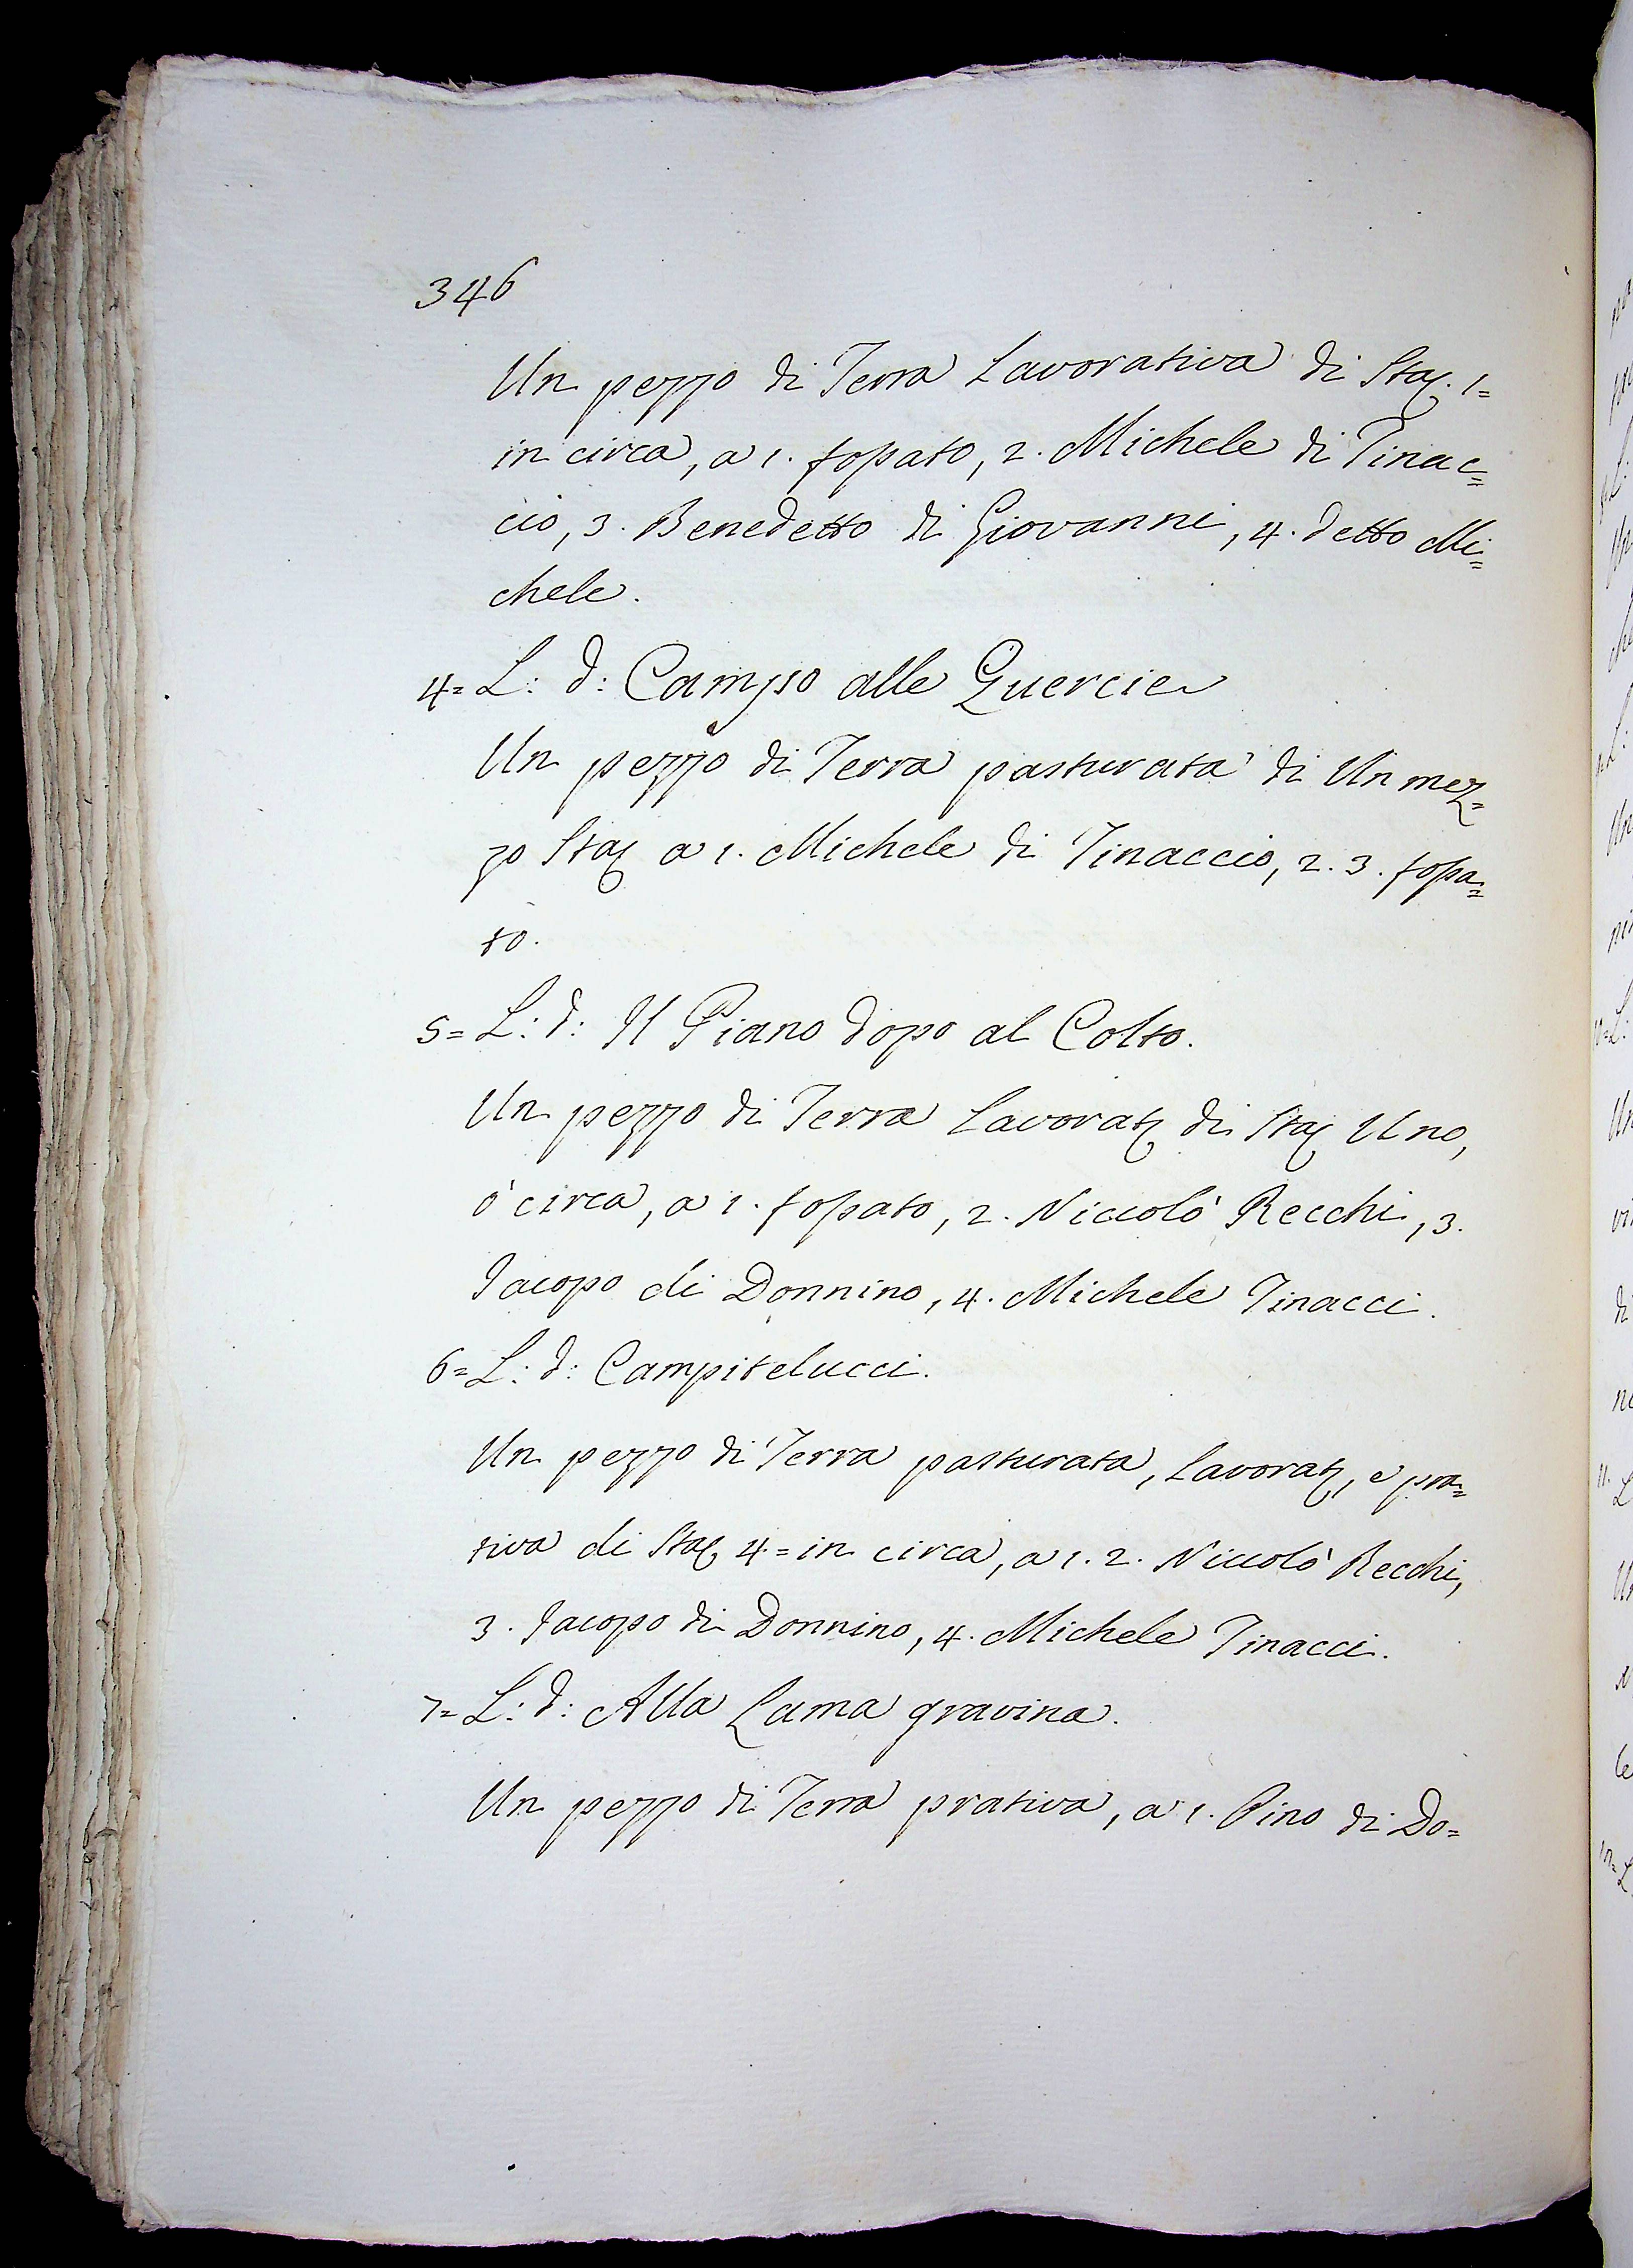 346
Un pezzo di Terra Lavorativa di Staj. 1=
in circa, a 1. fossato, 2. Michele di Tinac=
cio, 3. Benedetto di Giovanni, 4. detto Mi=
chele.
4= L: d: Campo alle Quercie
Un pezzo di Terra pasturata di Un mez=
zo Staj a 1. Michele di Tinaccio, 2. 3. fossa=
to.
5= L: d: Il Piano dopo al Colto.
Un pezzo di Terra Lavorat; di Staj Uno,
ò circa, a 1. fossato, 2. Niccolò Recchi, 3.
Jacopo di Donnino, 4. Michele Tinacci.
6= L: d: Campitelucci.
Un pezzo di Terra pasturata, Lavorat;, e pra=
tiva di Staj 4= in circa, a 1. 2. Niccolò Recchi,
3. Jacopo di Donnino, 4. Michele Tinacci.
7= L: d: Alla Lama gravina.
Un pezzo di Terra prativa, a 1. Pino di Do=